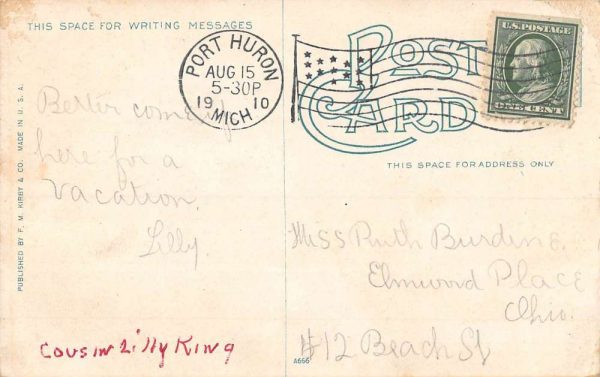 THIS SPACE FOR WRITING MESSAGES
POST CARD
PORT HURON
AUG 15
5-30P
19 10
MICH
U.S. POSTAGE
ONE CENT
THIS SPACE FOR ADDRESS ONLY
PUBLISHED BY F. M. KIRBY & CO. MADE IN U. S. A.
Better come up
here for a
vacation.
Lilly
Cousin Lilly King
Miss Ruth
Elmwood Place
Ohio.
#12 Beach St
A666